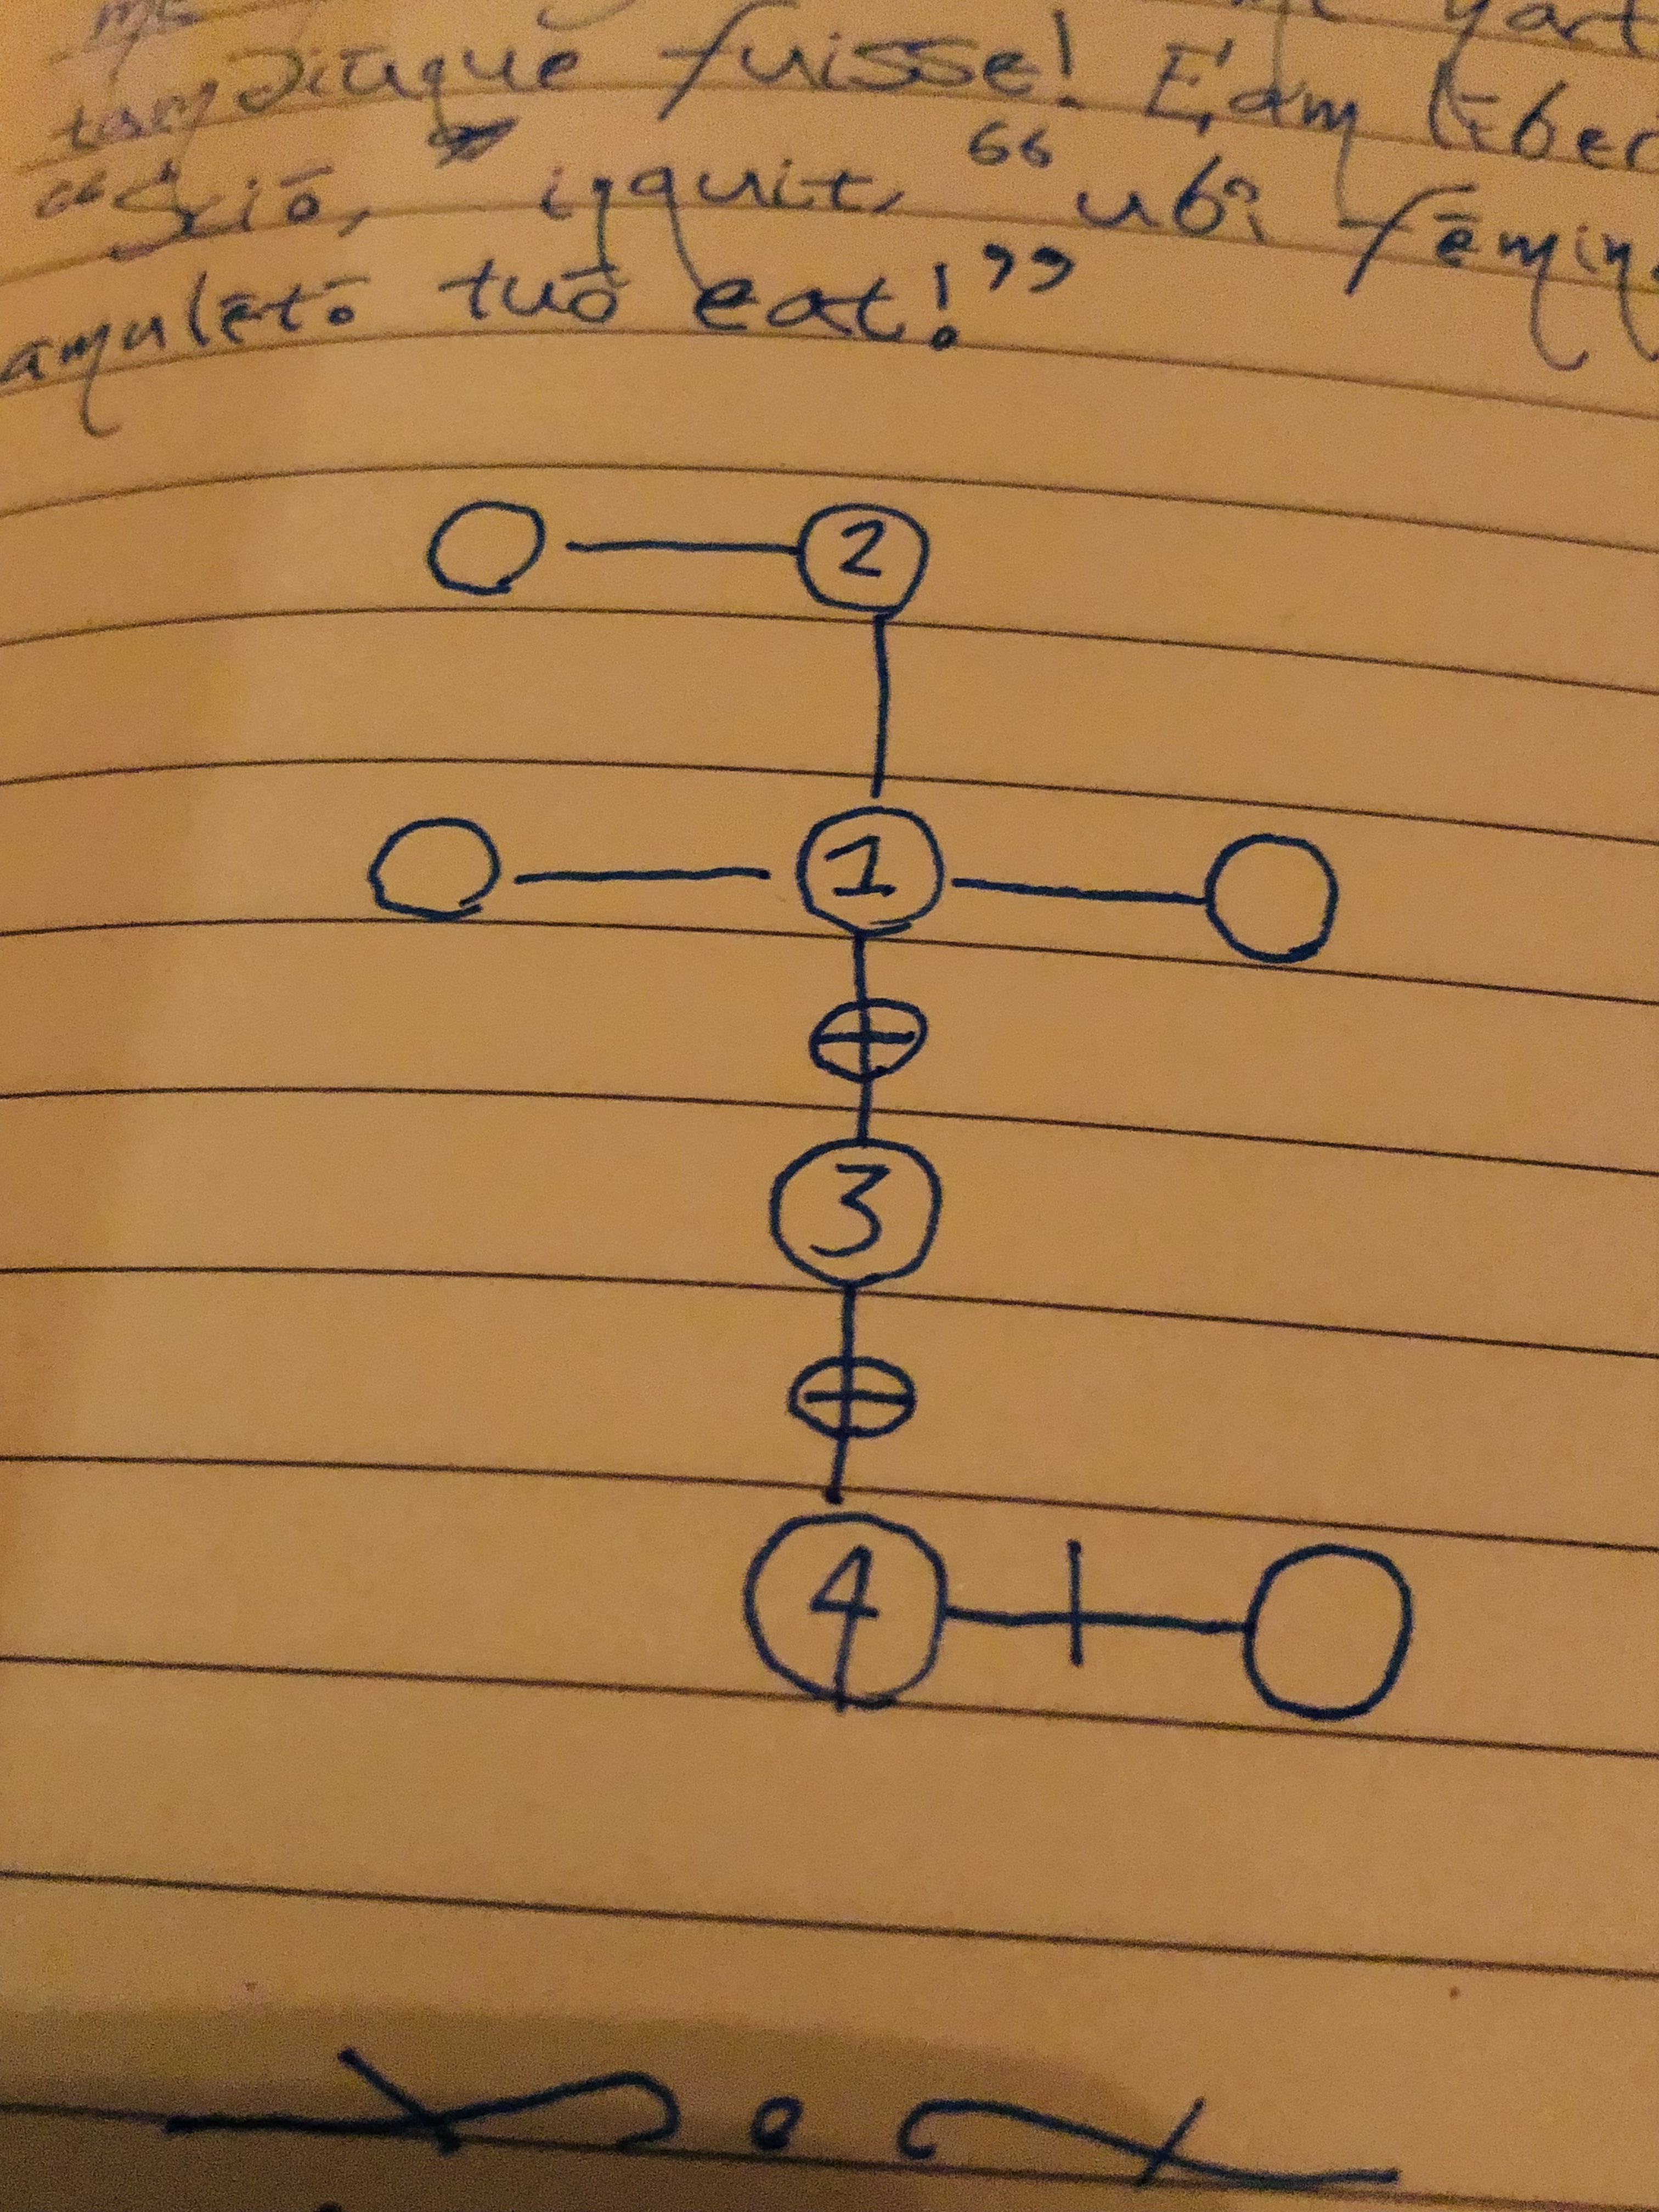 tamdiūque fuisse! Eam līber
“Sciō,” inquit, “ubi fēmin
amulētō tuō eat!”
2
1
3
4